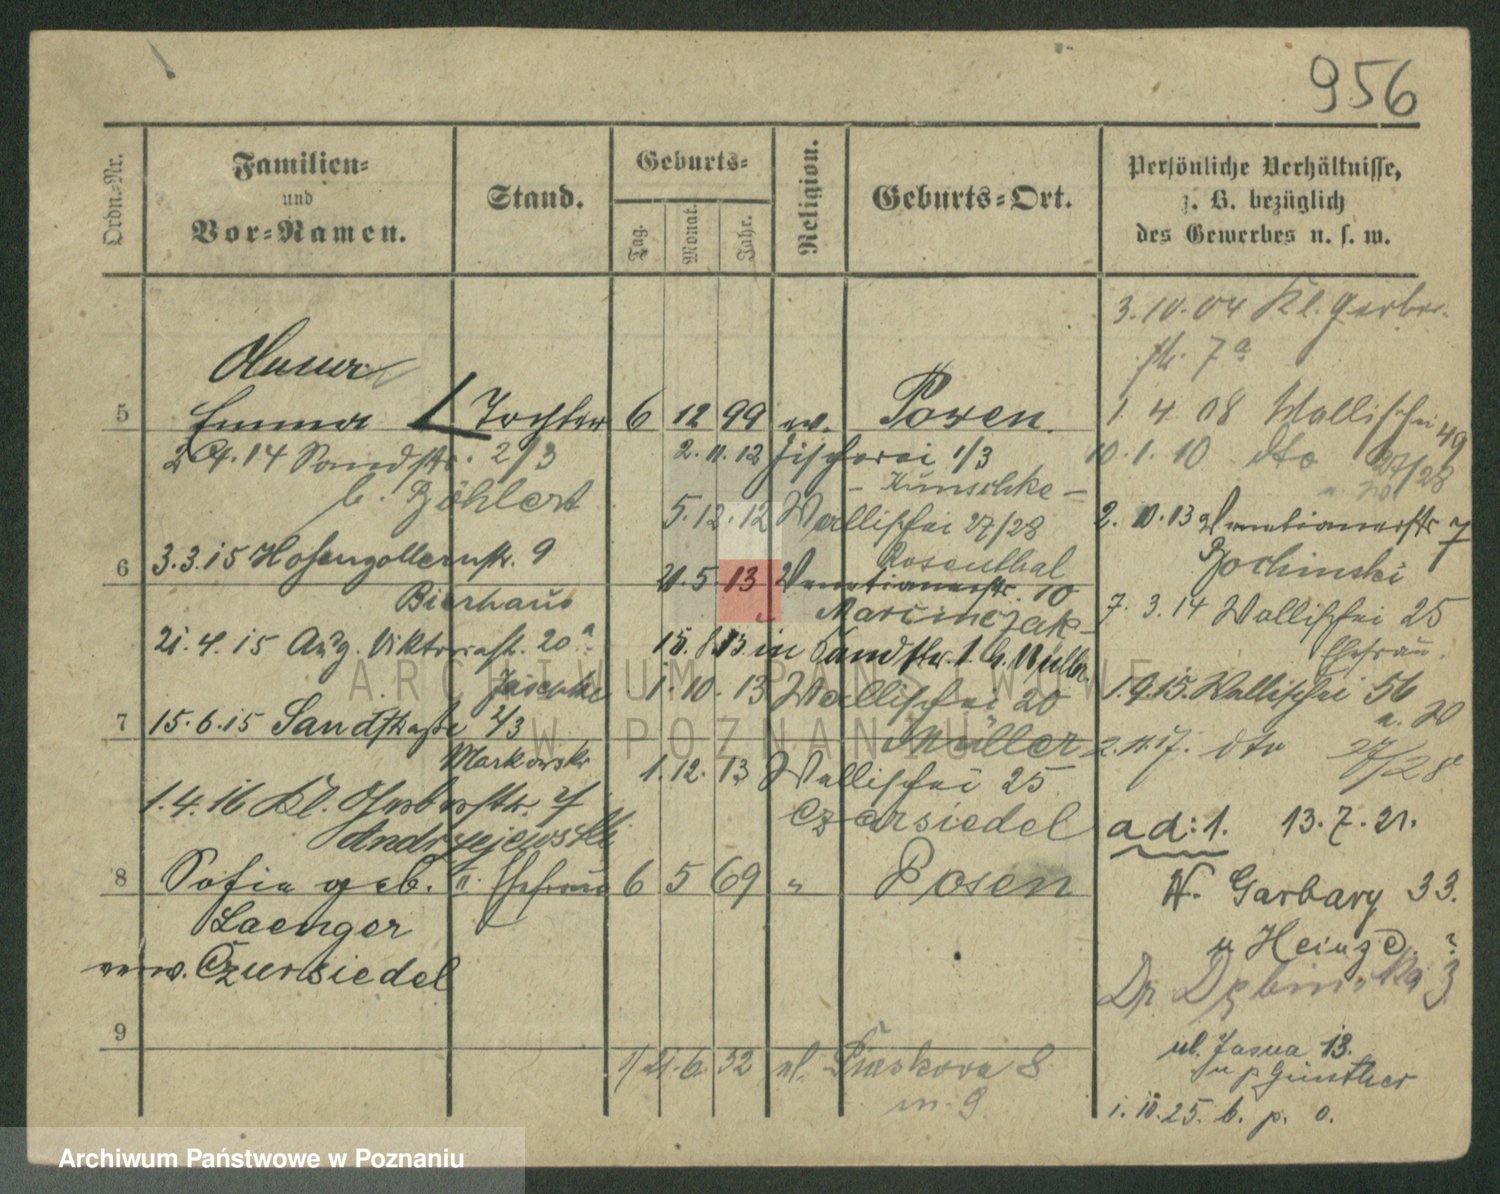 956
Ordn.=Nr.
Familien=
und
Vor=Namen.
Stand.
Geburts=
Tag.
Monat.
Jahr.
Religion.
Geburts=Ort.
Persönliche Verhältnisse,
z. B. bezüglich
des Gewerbes u. s. w.
3.10.04 Kl. Gerber-
str. 7a
5 Emma Tochter 6 12 99 ev. Posen.
1. 4. 08 Wallischei 49
2.4.14 Sandstr. 2/3
2.11.12 Fischerei 1/3
10.1.10 dto 27/28
b. Böhlert
- Kunschke -
5.12.12 Wallischei 27/28
2. 10. 13 Venetianerstr 7
Rosenthal
Bochinski
6 3.3.15 Hohenzollernstr. 9
21.5.13 Venetianerstr. 10
Bierhaus
Marcinczak-
7. 3. 14 Wallischei 25
Ehefrau.
21.4.15 Aug. Viktoriastr. 20a
15.8.13 in Sandstr. 1. b. Müller
Jaschke
1.10.13 Wallischei 20
Müller
1.9.15. Wallischei 56
7 15.6.15 Sandstraße 2/3
2.11.17. dto 27/28
Markowski
1.12.13 Wallischei 25
Czarsiedel
1.4.16 Kl. Gerberstr. 7
Andrzejewski
ad: 1. 13.7.21.
8 Sofie geb. Ehefrau 6 5 69 " Posen
W. Garbary 33.
Laenger
u Heinze
verw. Czursiedel
9
ul. Jasna 13.
u p Günther
21.6.32 ul. Piaskowa 8
m. 9.
1. 10. 25. b. p. o.
ARCHIWUM PAŃSTWOWE
W POZNANIU
Archiwum Państwowe w Poznaniu